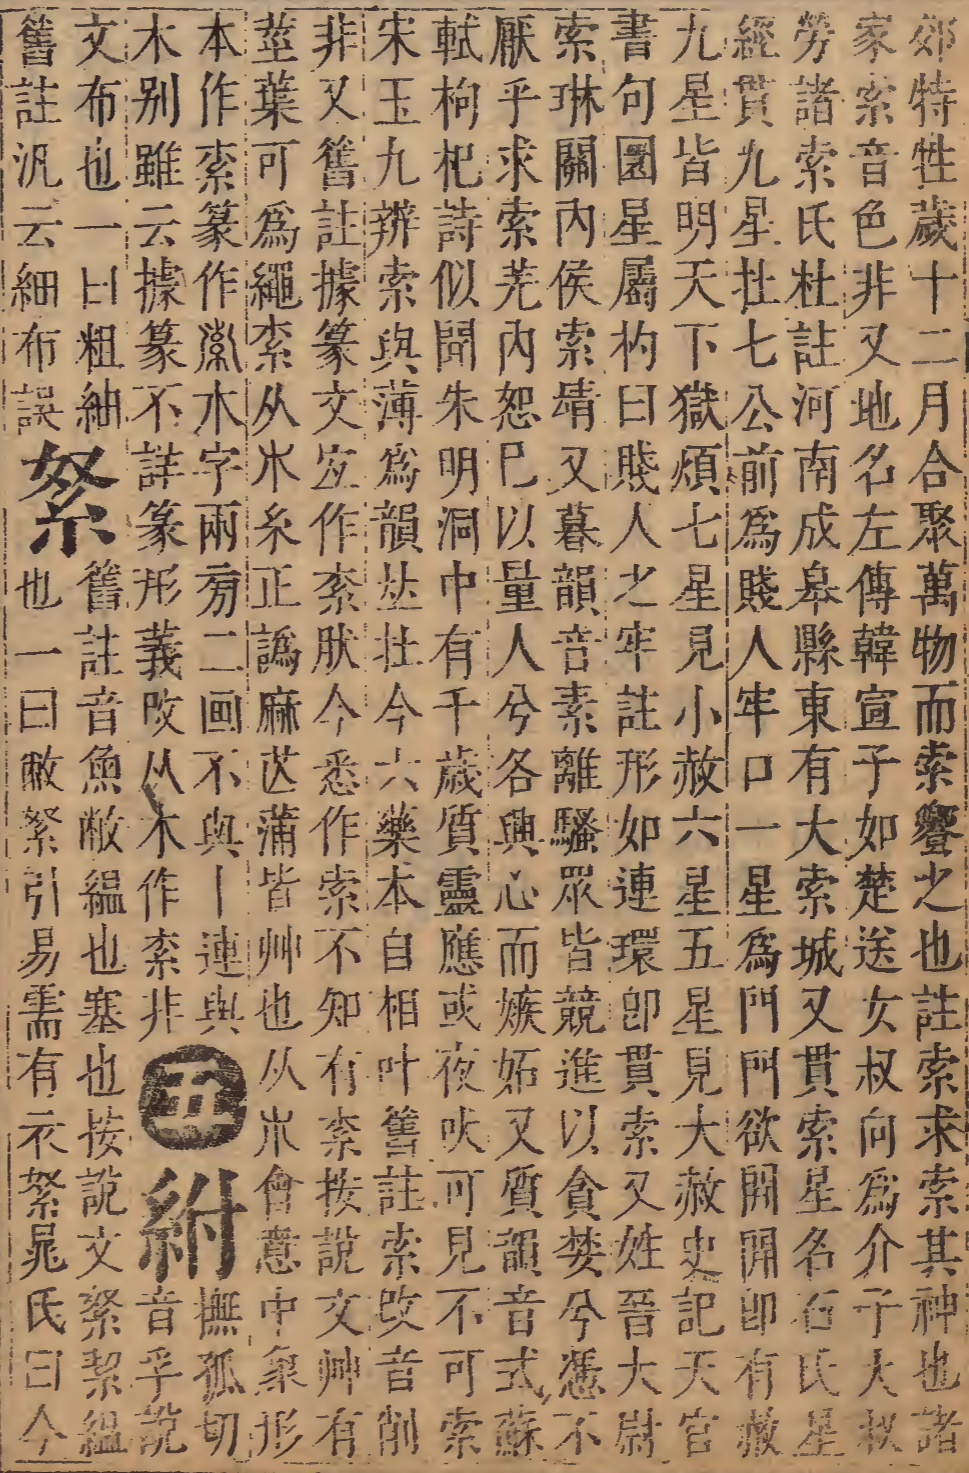 郊特牲歲十二月合聚萬物而索饗之也註索求索其神也諸
家索音色非又地名左傳韓宣子如楚送女叔向爲介子大叔
勞諸索氏杜註河南成皋縣東有大索城又貫索星名石氏星
經貫九星在七公前爲賤人牢口一星爲門門欲開開卽有赦
九星皆明天下獄煩七星見小赦六星五星見大赦史記天官
書句圜星屬杓曰賤人之牢註形如連環卽貫索又姓晉大尉
索琳關內侯索靖又暮韻音素離騷眾皆競進以貪婪兮憑不
厭乎求索羌內恕巳以量人兮各興心而嫉妬又質韻音式蘇
軾枸杞詩似聞朱明洞中有千歲質靈應或夜吠可見不可索
宋玉九辨索與薄爲韻𠀤壯今六藥本自相叶舊註索改音削
非又舊註據篆文宐作𣐗肰今悉作索不知有𣐗按說文艸有
莖葉可爲繩𣐗从𣎵糸正譌麻苡蒲皆艸也从𣎵會意中象形
本作𣐗篆作𣐗𣎵字兩旁二画不與丨連與
木别雖云據篆不詳篆形義改从木作𣐗非
紨撫孤切音孚說
文布也一曰粗紬
舊註汎云細布誤
絮舊註音魚敝縕也塞也按說文絮絜縕
也一曰敝絮引易需有衣絮晁氏曰今